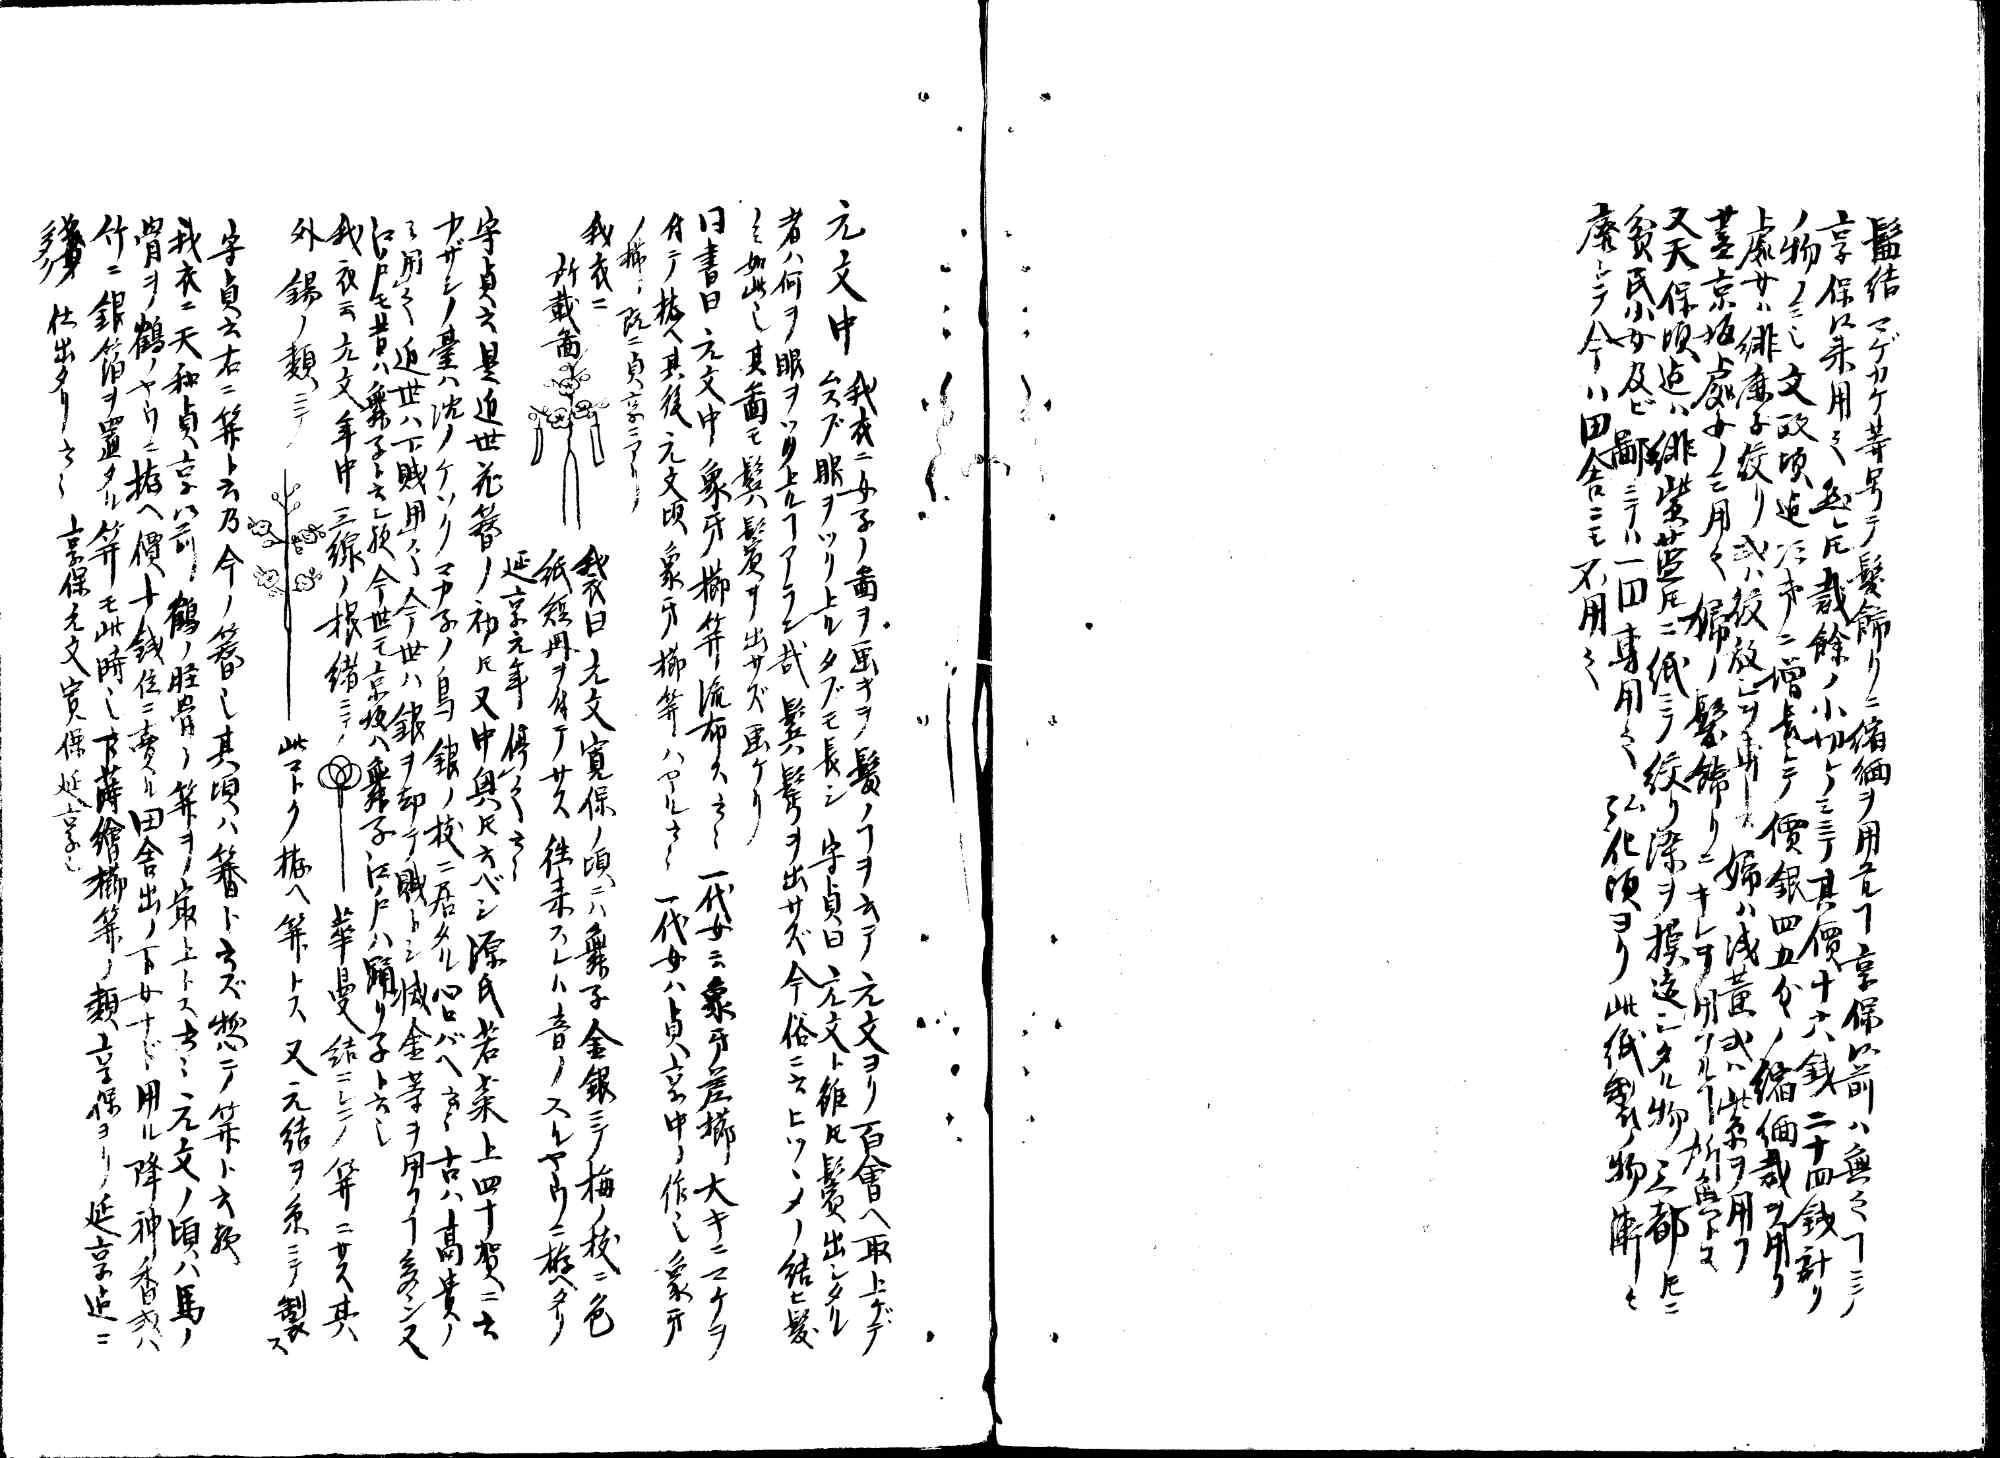 髷結マゲカケ等号テ髪飾リニ縮緬ヲ用フルヿ享保以前ハ無之ヿニシ
享保以来用之然レ𪜈裁餘ノ小切レノミニテ其價十六銭二十四銭計リ
ノ物ノミ也文政頃迠次第ニ増長シテ價銀四五分ノ縮緬裁ヲ用フ
上處女ハ緋鹿子絞リ或ハ絞放シヲ専トス婦ハ浅黄或ハ紫ヲ用フ
蓋京坂處女ノミ用之婦ノ髪飾リニキレヲ用フルヿ所無トス
又天保頃迠ハ緋紫藍𪜈ニ紙ニテ絞リ染ヲ模造シタル物ヲ三都𪜈ニ
貧民小女及ビ鄙ニテハ一囙専用之弘化頃ヨリ此紙製ノ物漸ク
廃シテ今ハ田舎ニモ不用之
元文中 我衣ニ女子ノ畵ヲ画キテ髪ノヿヲ云テ元文ヨリ百會ヘ取上ゲテ
ムスブ眼ヲツリ上ルタブモ長シ守貞曰元文ト雖𪜈鬢出シタル
者ハ何ヲ眼ヲツリ上ルヿアラン哉鬢ハ髩ヲ出サズ今俗ニ云ヒツツメノ結ヒ髪
ミ如此シ其畵モ鬢ハ髩ヲ出サズ画ケリ
同書曰元文中象牙櫛笄流布ス云々一代女ニ象牙ノ差櫛大キニマケヲ
付テ拵ヘ其後元文頃象牙櫛笄ハヤル云々一代女ハ貞京中ノ作也象牙
ノ櫛ハ既ニ貞享ニアリ
我衣ニ
所載畵
我衣曰元文寛保ノ頃ニハ舞子金銀ニテ梅ノ枝ニ色
紙短冊ヲ付テサス往来スレハ音ノスルヤウニ拵ヘタリ
延京元年停之云々
守貞云是近世花簪ノ初𪜈又中興𪜈云ベシ源氏若菜上四十賀ニ云
カザシノ臺ハ沈ノケソクコガネノ鳥銀ノ枝ニ居タル心ロバヘ云々古ハ高貴ノ
ミ用之近世ハ下賎用之今世ハ銀ヲ却テ賎トシ滅金等ヲ用フヿ多シ又
江戸モ昔ハ舞子ト云シ歟今世モ京坂ハ舞子江戸ハ踊リ子ト云シ
我衣云元文年中三線ノ根緒ニテ華曼結ニシテ笄ニサス其
外錫ノ類ニテ此コトク拵ヘ笄トス又元結ヲ糸ニテ製ス
守貞云右ニ笄ト云乃今ノ簪也其頃ハ簪ト云ズ惣ベテ笄ト云歟
我衣ニ天和貞京以前鶴ノ脛骨ノ笄ヲ最上トス云々元文ノ頃ハ馬ノ
骨ヲ鶴ノヤウニ拵ヘ價十銭位ニ賣ル田舎出ノ下女ナド用ル降神香或ハ
竹ニ銀箔ヲ置タル笄モ此時也下蒔繪櫛笄ノ類享保ヨリ延享迠ニ
多ク仕出タリ云々享保元文寛保延享也